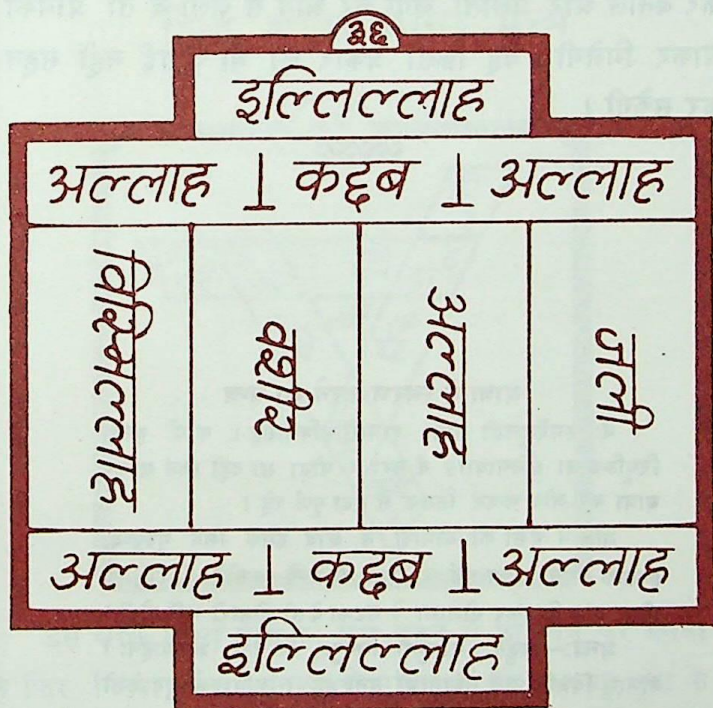 ३६
इल्लिल्लाह
अल्लाह ⊥ कद्दब ⊥ अल्लाह
विस्मिल्लाह
वशीर
अल्लाह
जली
अल्लाह ⊥ कद्दब ⊥ अल्लाह
इल्लिल्लाह